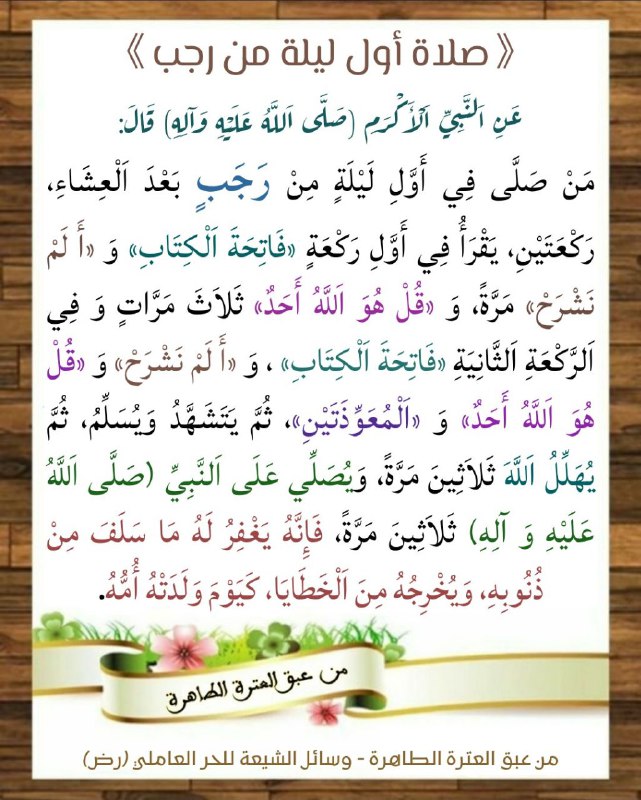 《صلاة أول ليلة من رجب》
عَنِ اَلنَّبِيِّ اَلْأَكْرَمِ (صَلَّى اَللَّهُ عَلَيْهِ وَآلِهِ) قَالَ:
مَنْ صَلَّى فِي أَوَّلِ لَيْلَةٍ مِنْ رَجَبٍ بَعْدَ اَلْعِشَاءِ،
رَكْعَتَيْنِ، يَقْرَأُ فِي أَوَّلِ رَكْعَةٍ «فَاتِحَةَ اَلْكِتَابِ» وَ «أَ لَمْ
نَشْرَحْ» مَرَّةً، وَ «قُلْ هُوَ اَللَّهُ أَحَدٌ» ثَلاَثَ مَرَّاتٍ وَ فِي
اَلرَّكْعَةِ اَلثَّانِيَةِ «فَاتِحَةَ اَلْكِتَابِ» ، وَ «أَ لَمْ نَشْرَحْ» وَ «قُلْ
هُوَ اَللَّهُ أَحَدٌ» وَ «اَلْمُعَوِّذَتَيْنِ»، ثُمَّ يَتَشَهَّدُ وَيُسَلِّمُ، ثُمَّ
يُهَلِّلُ اَللَّهَ ثَلاَثِينَ مَرَّةً، وَيُصَلِّي عَلَى اَلنَّبِيِّ (صَلَّى اَللَّهُ
عَلَيْهِ وَ آلِهِ) ثَلاَثِينَ مَرَّةً، فَإِنَّهُ يَغْفِرُ لَهُ مَا سَلَفَ مِنْ
ذُنُوبِهِ، وَيُخْرِجُهُ مِنَ اَلْخَطَايَا، كَيَوْمَ وَلَدَتْهُ أُمُّهُ.
من عبق العترة الطاهرة
من عبق العترة الطاهرة - وسائل الشيعة للحر العاملي (رض)